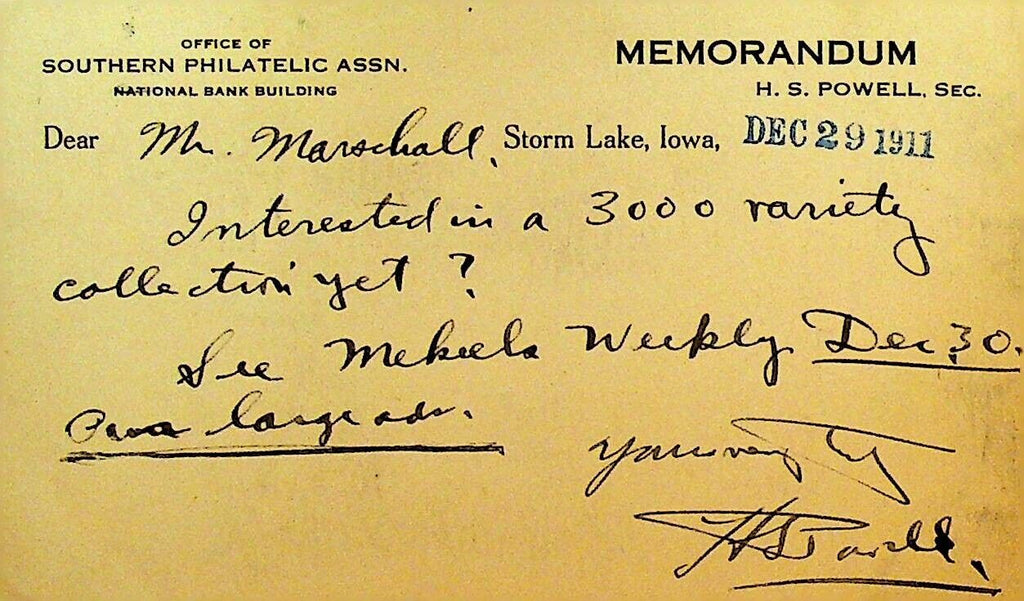 OFFICE OF
SOUTHERN PHILATELIC ASSN.
NATIONAL BANK BUILDING
MEMORANDUM
H. S. POWELL, SEC.
Dear Mr. Marschall, Storm Lake, Iowa, DEC 29 1911
Interested in a 3000 variety
collection yet?
See Mekeels Weekly Dec 30.
large adv.
Yours very truly
H S Powell.